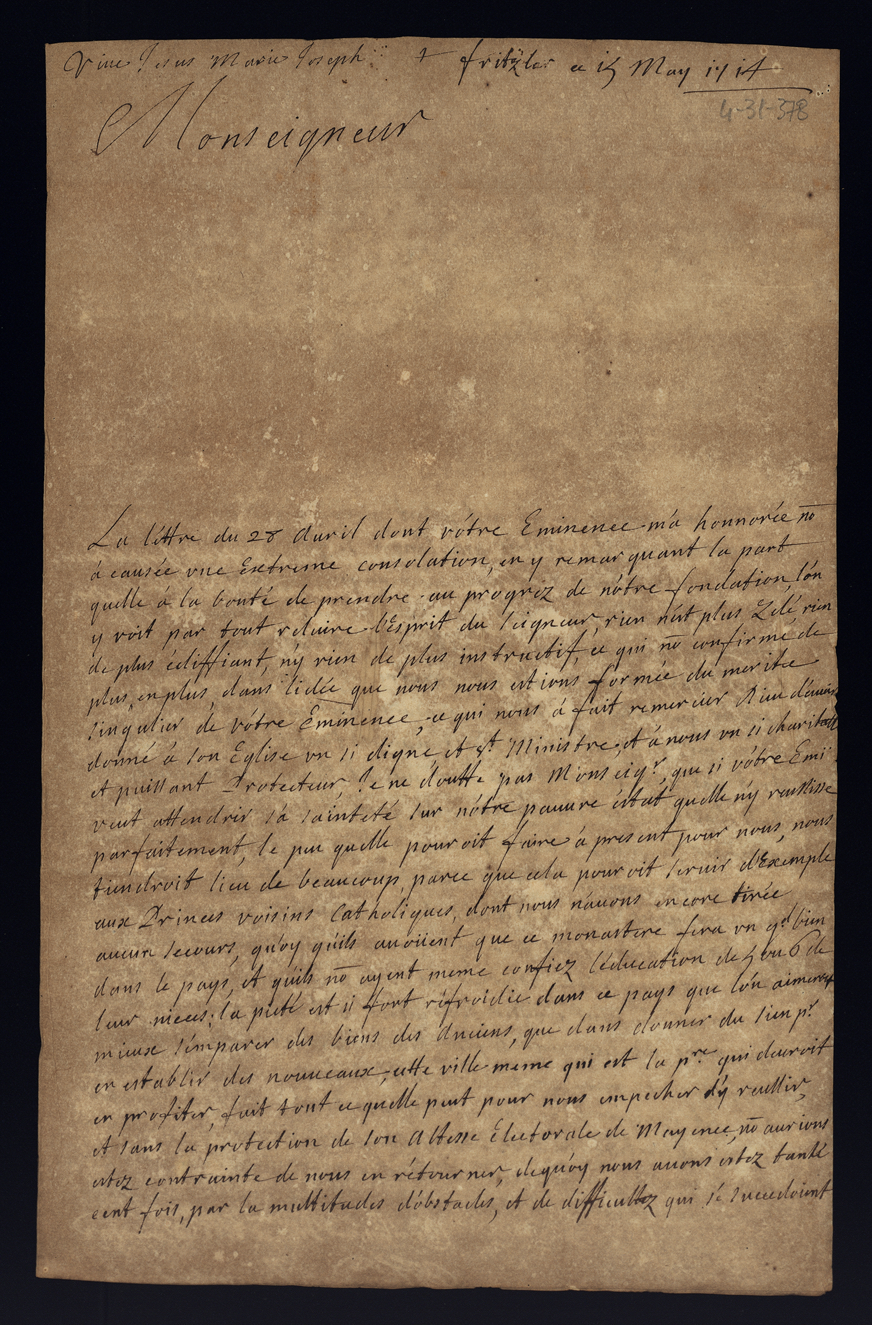 Viue Jesus Marie Joseph + fritzlar ce 15 May 1714
4-31-378
Monseigneur
La léttre du 28 Auril dont vótre Eminence m'a honnorée no᷃
á causée vne Extreme consolation, en y remarquant la part
quelle á la bonté de prendre au progréz de nótre fondation, l'on
y voit par tout reluire l'Esprit du seigneur, rien n'ést plus Zélé rien
de plus édiffiant, n'y rien de plus instructif, ce qui no᷃ confirme, de
plus, en plus dans l'idée que nous nous estions formée du merite
singulier de vótre Eminence, ce qui nous á fait remercier Dieu d'auoir
donné á son Eglise vn si digne, et st Ministre, et á nous vn si charitable
et puissant Protecteur, Je ne doutte pas Monseigr, que si vótre Emi
veut attendrir sa sainteté sur nótre pauure éstat quelle n'y reussisse
parfaitement, le peu quelle pouroit faire á present pour nous, nous
tiendroit lieu de beaucoup, parce que cela pouroit seruir d'Exemple
aux Princes voisins Catholiques, dont nous n'auons encore tirée
aucun secours, quoy quils auoüent que ce monastere fera vn gd bien
dans le pays, et quils no᷃ ayent meme confiez l'éducation de 5 ou 6 de
leur nieces; la pieté est si fort réfroidie dans ce pays que l'on aimeroit
mieux s'emparer des biens des Anciens, que dans donner du sien pr
en establir des nouueaux, cette ville meme qui est la pre qui deuroit
en profiter, fait tout ce quelle peut pour nous empecher d'y reussir,
et sans la protection de son Altesse Electorale de Mayence, no᷃ aurions
estez contrainte de nous en rétourner, dequoy nous auons estez tanté
cent fois, par la multitudes d'obstacles, et de difficultéz qui se succedoient